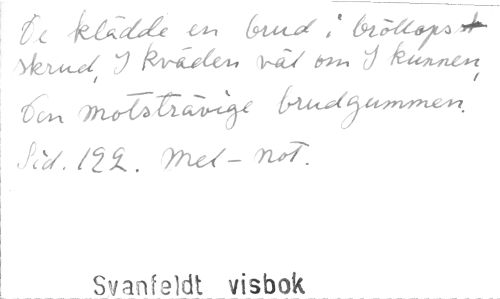 De klädde en brud i bröllops
skrud, I kväden väl om I kunnen,
Den motsträvige brudgummen.
Sid. 122. Mel-not.
Svanfeldt visbok